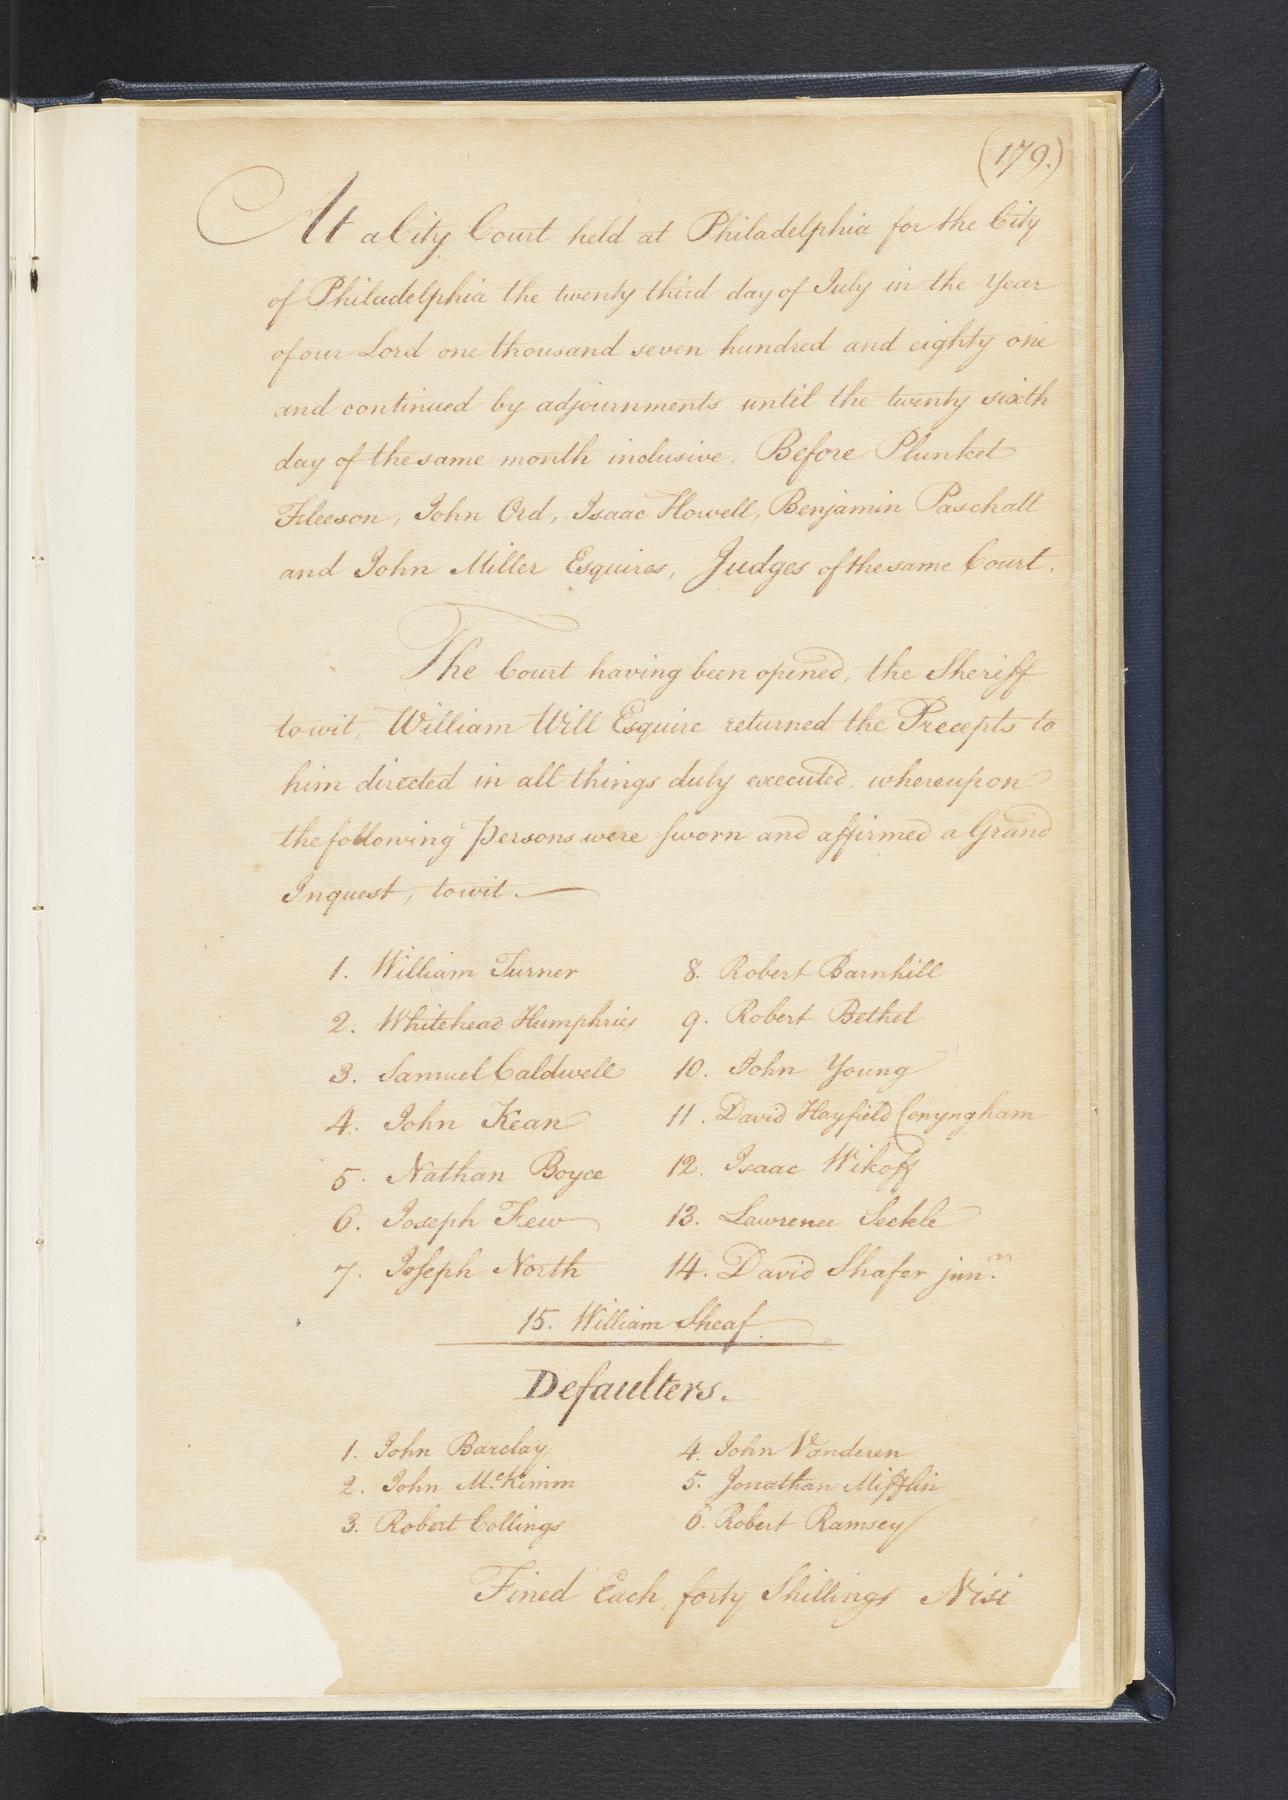 (179.)
At a City Court held at Philadelphia for the City
of Philadelphia the twenty third day of July in the Year
of our Lord one thousand seven hundred and eighty one
and continued by adjournments until the twenty sixth
day of the same month inclusive, Before Plunket
Fleeson, John Ord, Isaac Howell, Benjamin Paschall
and John Miller Esquires, Judges of the same Court.
The Court having been opened, the Sheriff
to wit, William Will Esquire returned the Precepts to
him directed in all things duly executed, whereupon
the following Persons were sworn and affirmed a Grand
Inquest, to wit.—
1. William Turner
2. Whitehead Humphries
3. Samuel Caldwell
4. John Kean
5. Nathan Boyce
6. Joseph Few
7. Joseph North
8. Robert Barnhill
9. Robert Bethel
10. John Young
11. David Hayfield Conyngham
12. Isaac Wikoff
13. Lawrence Seckle
14. David Shafer junr.
15. William Sheaf.
Defaulters.
1. John Barclay
2. John McKimm
3. Robert Collings
4. John Vanderen
5. Jonathan Mifflin
6. Robert Ramsey
Fined Each, forty Shillings Nisi